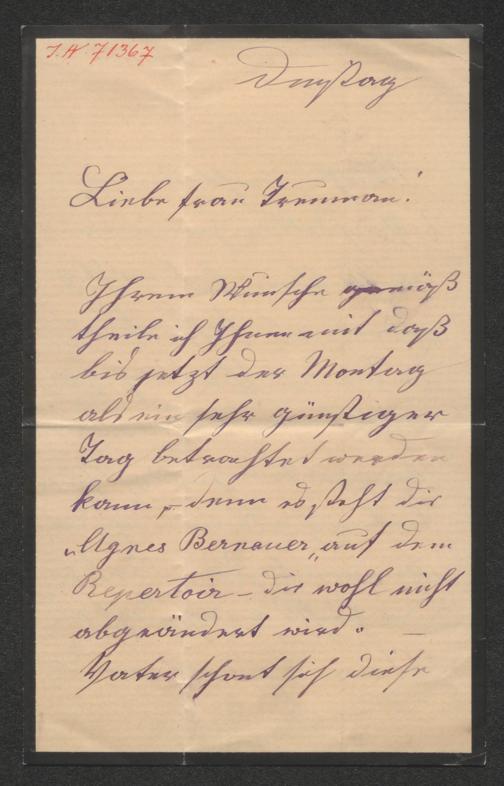 J.N. 71367
Dienstag
Liebe Frau
Ihrem Wunsche gemäß
theile ich Ihnen mit daß
bis jetzt der Montag
als ein sehr günstiger
Tag betrachtet werden
kann, – denn es steht die
„Agnes Bernauer„ auf dem
Repertoir – die wohl nicht
abgeändert wird. –
Vater schont sich diese